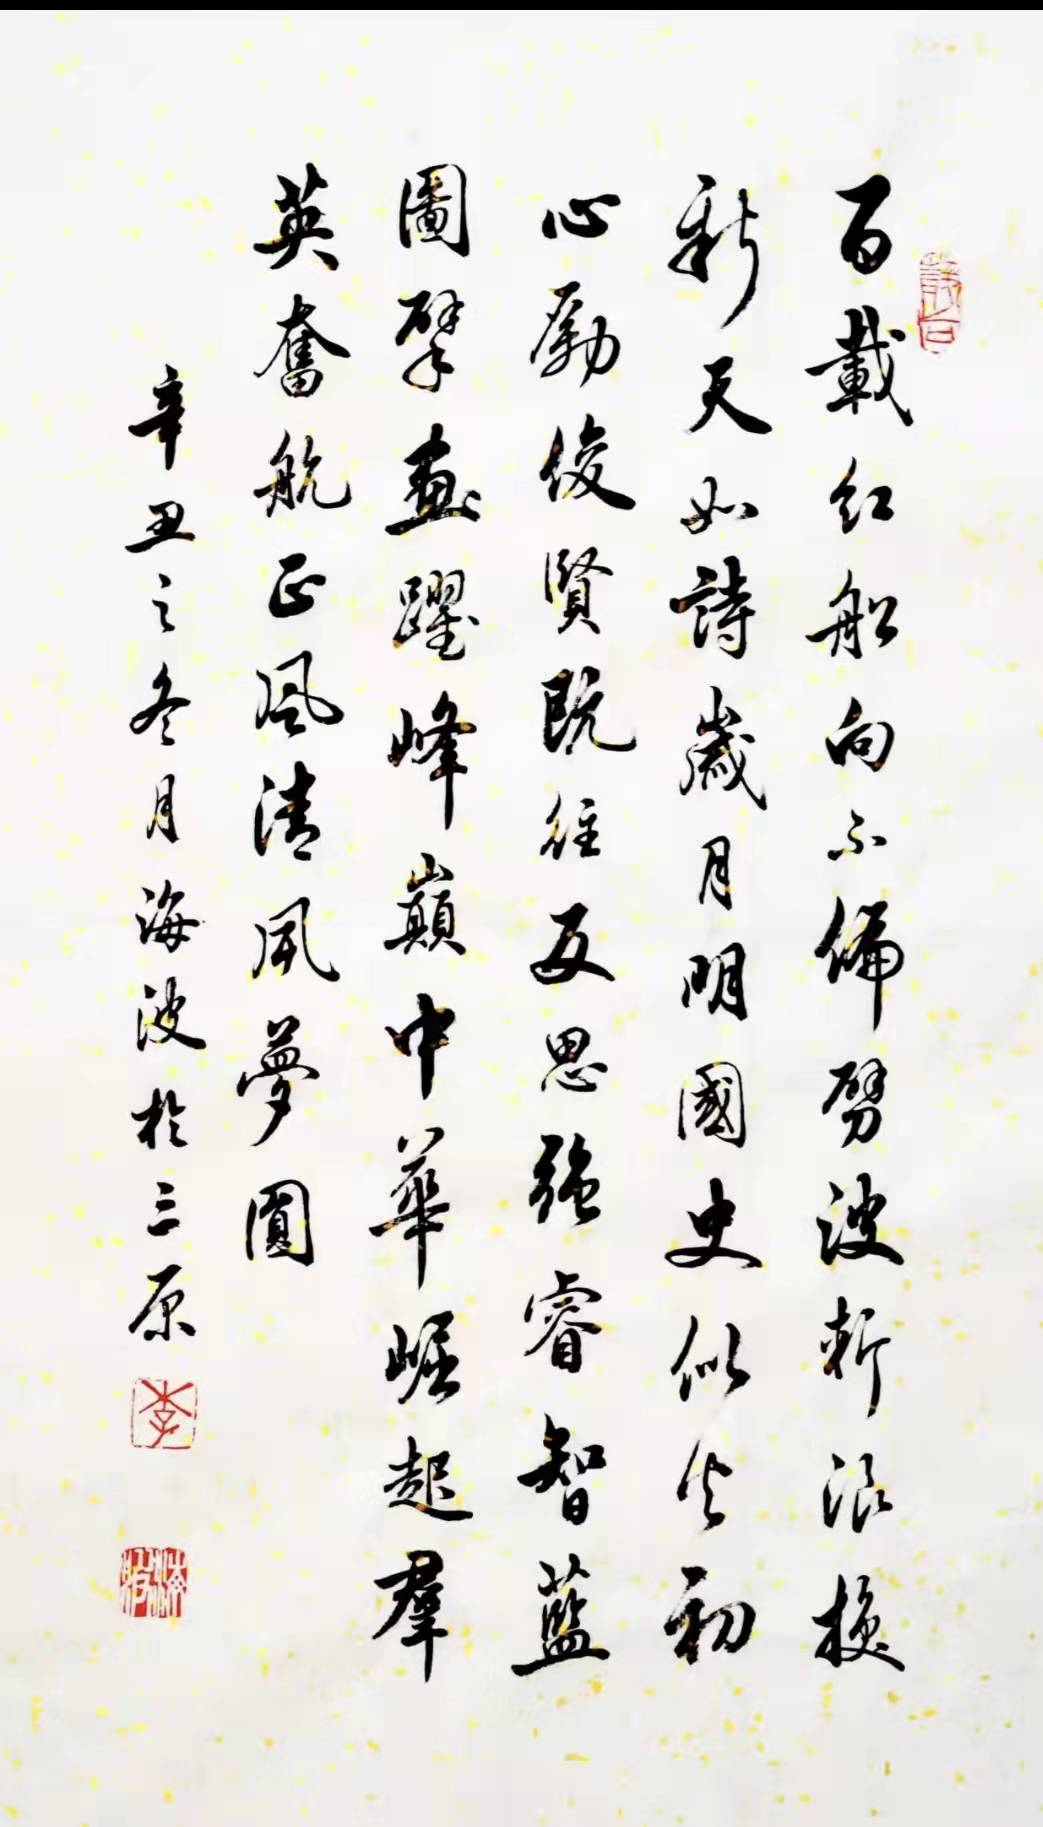 百載红船向不偏劈波斬浪換
新天如詩歲月明國史似火初
心勵俊賢既往反思強睿智藍
圖擘畫躍峰巔中華崛起羣
英奮航正風清夙夢圓
辛丑之冬月海波於三原
李
海波